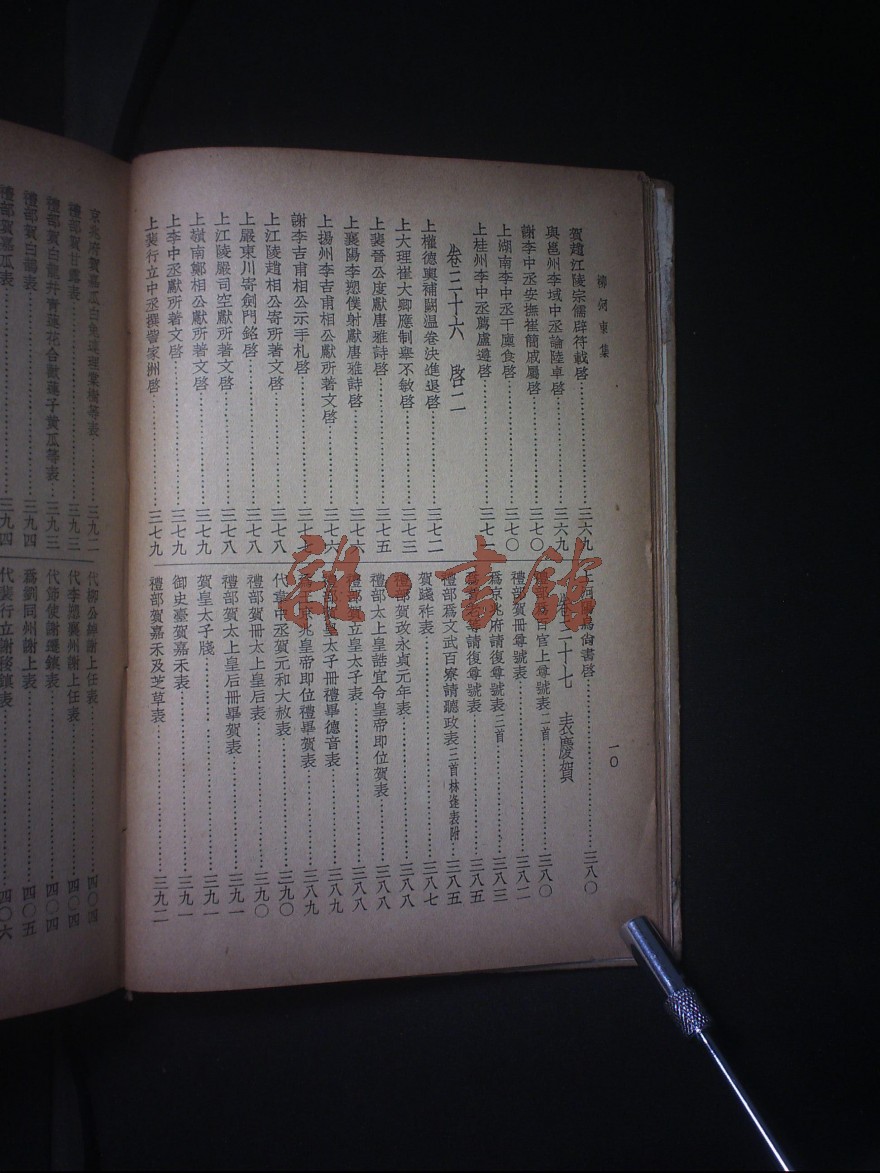 柳河東集
一〇
賀趙江陵宗儒辟符載啓……三六九
與邕州李域中丞論陸卓啓……三六九
謝李中丞安撫崔簡戚屬啓……三七〇
上湖南李中丞干廩食啓……三七〇
上桂州李中丞薦盧遵啓……三七一
卷三十六　啓二
上權德輿補闕溫卷決進退啓……三七二
上大理崔大卿應制舉不敏啓……三七三
上裴晉公度獻唐雅詩啓……三七五
上襄陽李愬僕射獻唐雅詩啓……三七六
上揚州李吉甫相公獻所著文啓……三七六
謝李吉甫相公示手札啓……三七七
上江陵趙相公寄所著文啓……三七八
上嚴東川寄劍門銘啓……三七八
上江陵嚴司空獻所著文啓……三七八
上嶺南鄭相公獻所著文啓……三七九
上李中丞獻所著文啓……三七九
上裴行立中丞撰訾家洲啓……三七九
尚書啓……三八〇
卷三十七　表慶賀
禮部爲百官上尊號表二首……三八〇
禮部賀冊尊號表……三八二
爲京兆府請復尊號表三首……三八三
請復尊號表……三八五
禮部爲文武百寮請聽政表三首林逢表附……三八五
賀踐祚表……三八七
禮部賀改永貞元年表……三八八
禮部太上皇誥宜令皇帝即位賀表……三八八
禮部賀立皇太子表……三八八
禮部賀皇太子冊禮畢德音表……三八九
京兆皇帝即位禮畢賀表……三八九
代韋中丞賀元和大赦表……三九〇
禮部賀冊太上皇后表……三九〇
禮部賀太上皇后冊畢賀表……三九一
賀皇太子牋……三九一
御史臺賀嘉禾表……三九一
禮部賀嘉禾及芝草表……三九二
京兆府賀嘉瓜白兔連理棠樹等表……三九二
禮部賀甘露表……三九三
禮部賀白龍并青蓮花合歡蓮子黃瓜等表……三九三
禮部賀白鵲表……三九四
禮部賀嘉瓜表……三九四
代柳公綽謝上任表……四〇四
代李愬襄州謝上任表……四〇四
代節使謝遷鎮表……四〇四
爲劉同州謝上表……四〇五
代裴行立謝移鎮表……四〇六
雜·書館